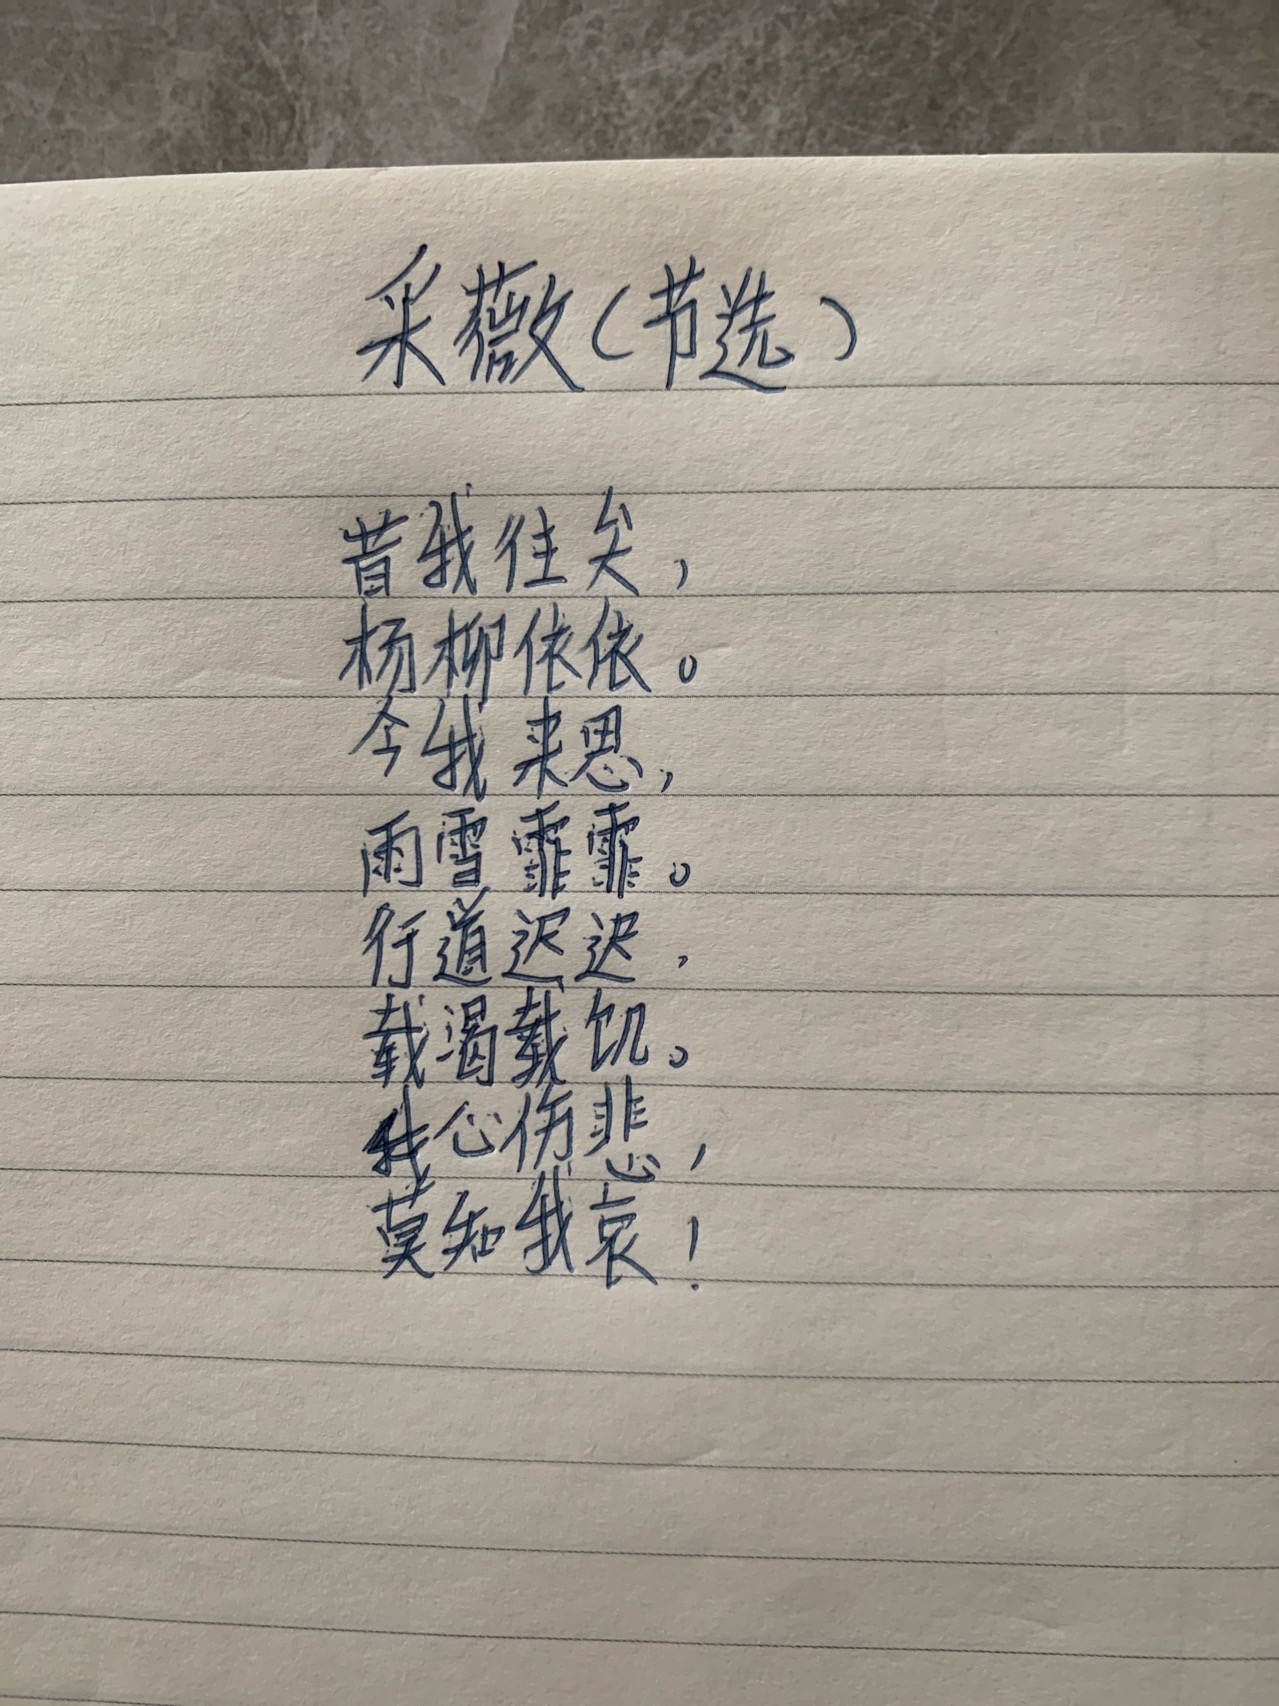 采薇（节选）
昔我往矣，
杨柳依依。
今我来思，
雨雪霏霏。
行道迟迟，
载渴载饥。
我心伤悲，
莫知我哀！